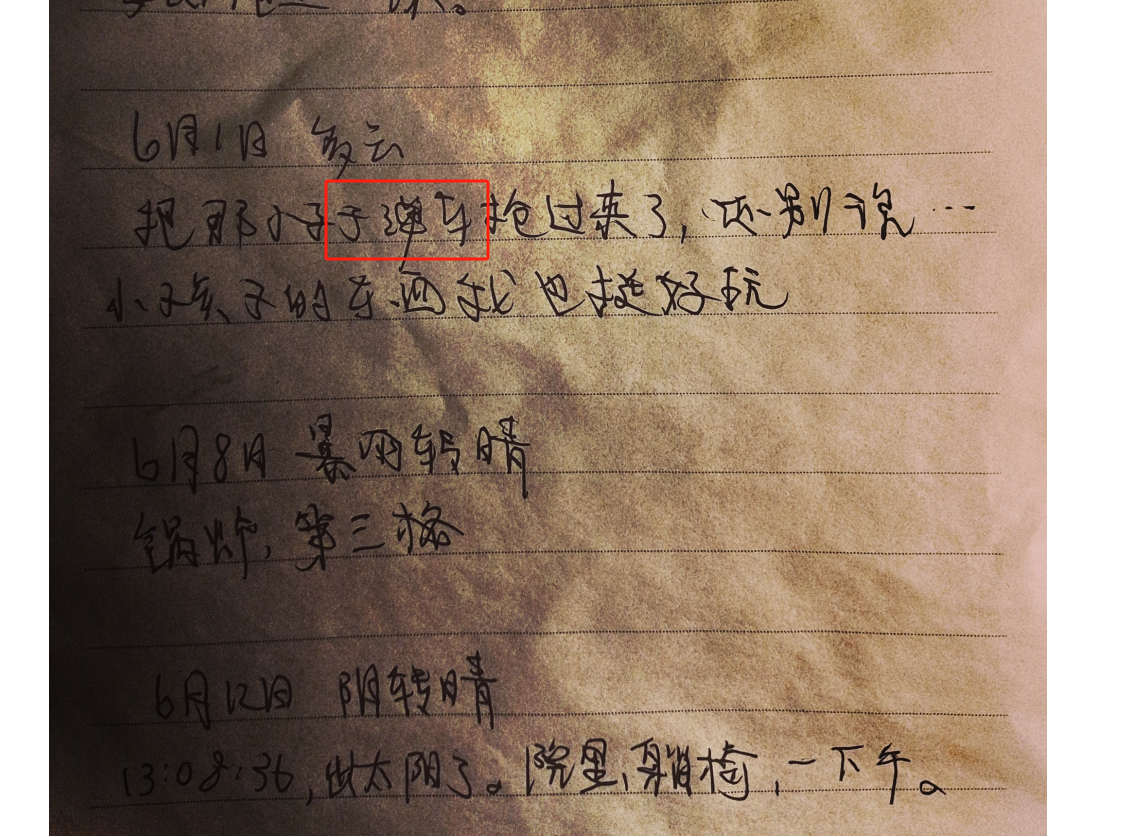 6月1日 多云
把那小子子弹车抢过来了,还别说…
小孩子的东西我也挺好玩
6月8日 暴雨转晴
锅炉,第三格
6月12日 阴转晴
13:08:36,出太阳了。院里,躺椅,一下午。